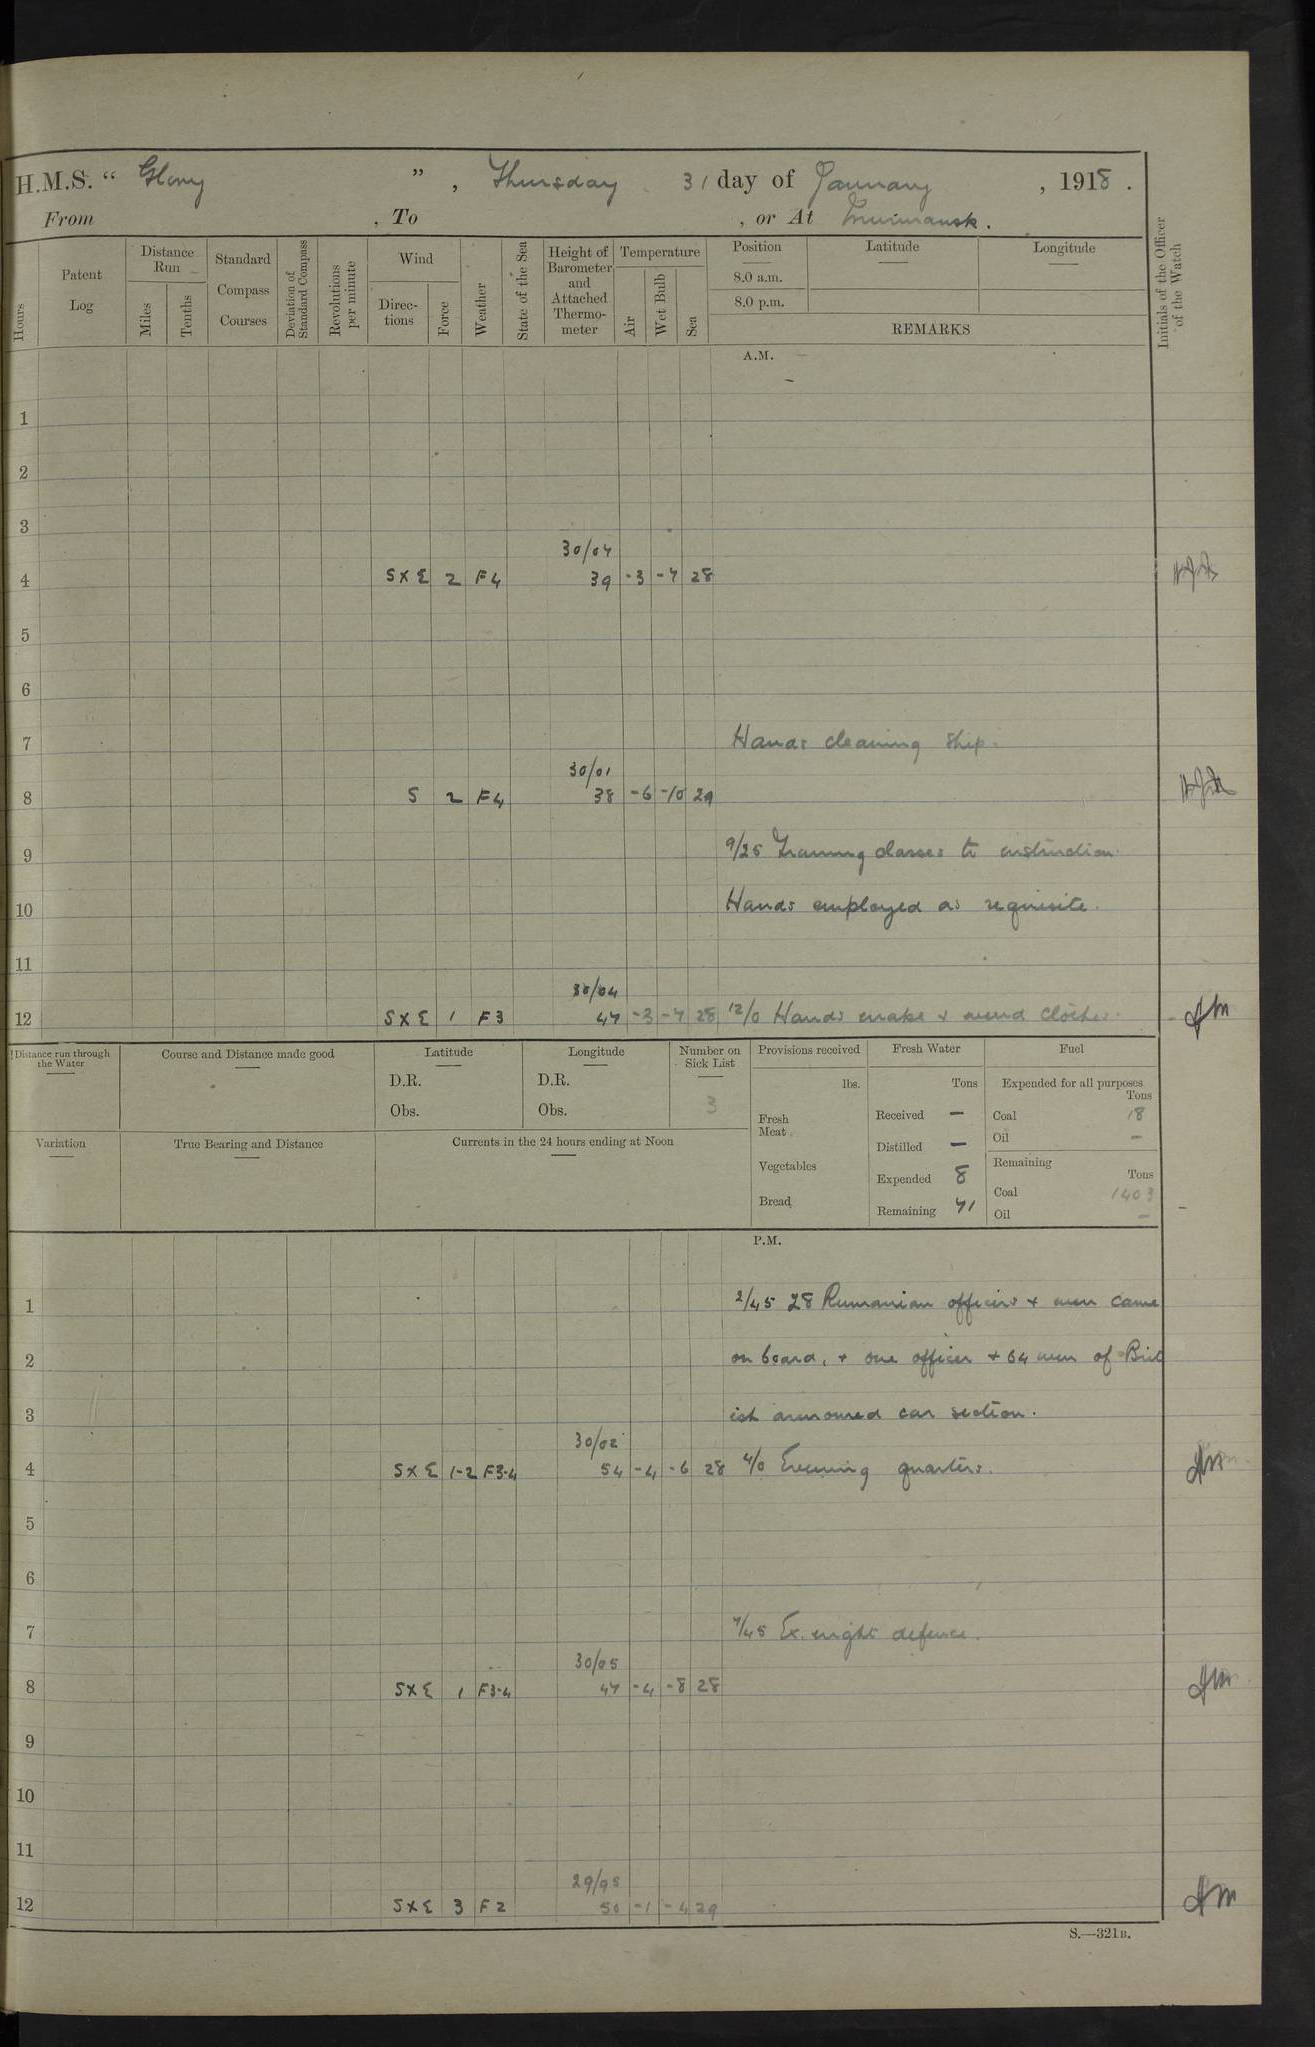 H.M.S. " Glory ", Thursday 31 day of January, 1918.
From , To , or At Murmansk.
Hours
Patent Log
Distance Run
Miles
Tenths
Standard Compass Courses
Deviation of Standard Compass
Revolutions per minute
Wind
Directions
Force
Weather
State of the Sea
Height of Barometer and Attached Thermometer
Temperature
Air
Wet Bulb
Sea
Position
8.0 a.m.
8.0 p.m.
Latitude
Longitude
REMARKS
Initials of the Officer of the Watch
A.M.
1
2
3
30/04
4 S X E 2 F4 39 -3 -7 28
5
6
7 Hands cleaning ship.
30/01
8 S 2 F4 38 -6 -10 29
9 9/25 Training classes to instruction.
10 Hands employed as requisite.
11
30/04
12 S X E 1 F3 47 -3 -7 28 12/0 Hands make & mend clothes.
Distance run through the Water
Course and Distance made good
Latitude
D.R.
Obs.
Longitude
D.R.
Obs.
Number on Sick List
3
Variation
True Bearing and Distance
Currents in the 24 hours ending at Noon
Provisions received
lbs.
Fresh Meat
Vegetables
Bread
Fresh Water
Tons
Received —
Distilled —
Expended 8
Remaining 71
Fuel
Expended for all purposes
Tons
Coal 18
Oil —
Remaining
Tons
Coal 1403
Oil —
P.M.
1 2/45 28 Rumanian officers & men came
2 on board, & one officer & 64 men of Brit
3 ish armoured car section.
30/02
4 S X E 1-2 F3-4 54 -4 -6 28 4/0 Evening quarters.
5
6
7 7/45 Ex. night defence.
30/05
8 S X E 1 F3-4 47 -4 -8 28
9
10
11
29/95
12 S X E 3 F2 50 -1 -4 29
S.—321B.